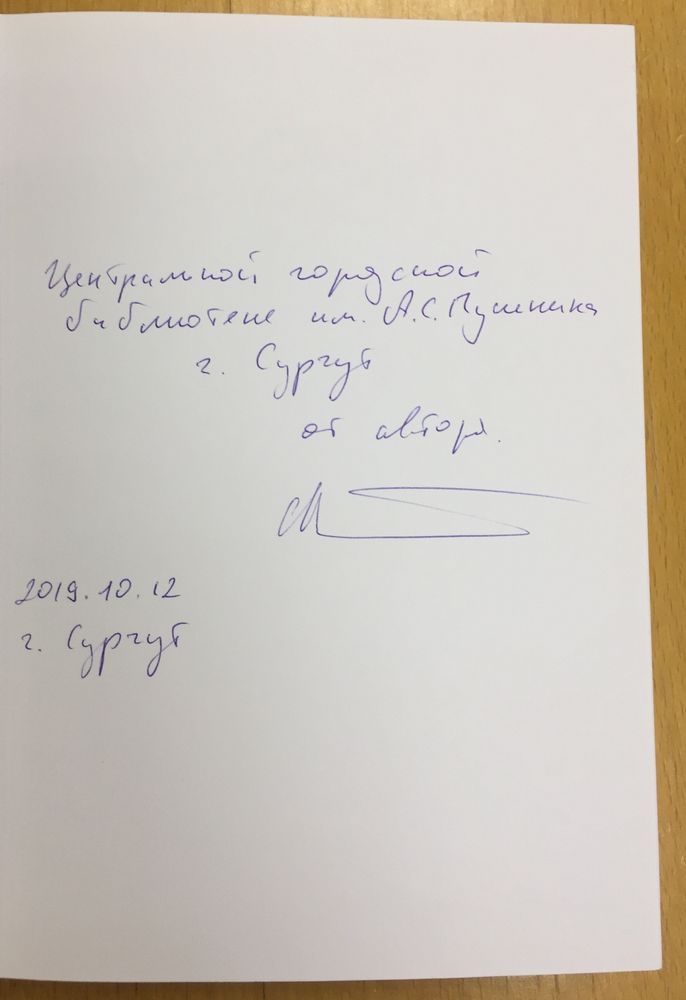 Центральной городской
библиотеке им. А.С. Пушкина
г. Сургут
от автора.
2019.10.12
г. Сургут